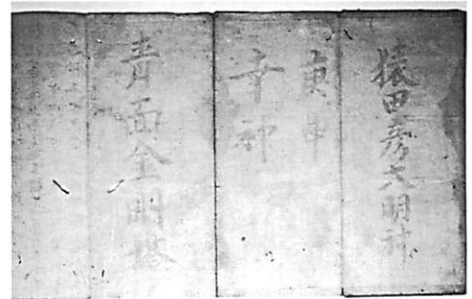 猿田彦大明神
庚申
幸神
青面金剛塔